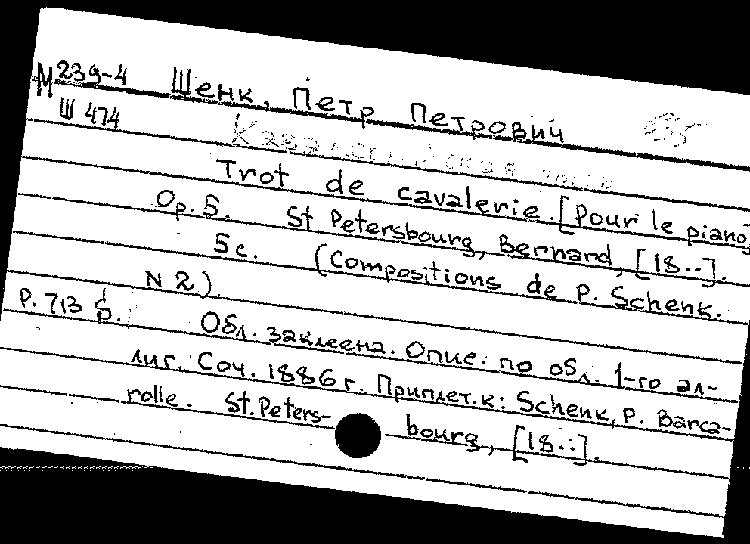 М239-4 Шенк, Петр Петрович
Ш 474
Trot de cavalerie. [Pour le piano]
Op. 5. St Petersbourg, Bernard, [18..].
5 с. (Compositions de P. Schenk.
N 2).
Р. 713 ф. Обл. заклеена. Опис. по обл. 1-го ал-
лиг. Соч. 1886 г. Приплет. к: Schenk, P. Barca-
rolle. St. Peters- bourg, [18..].